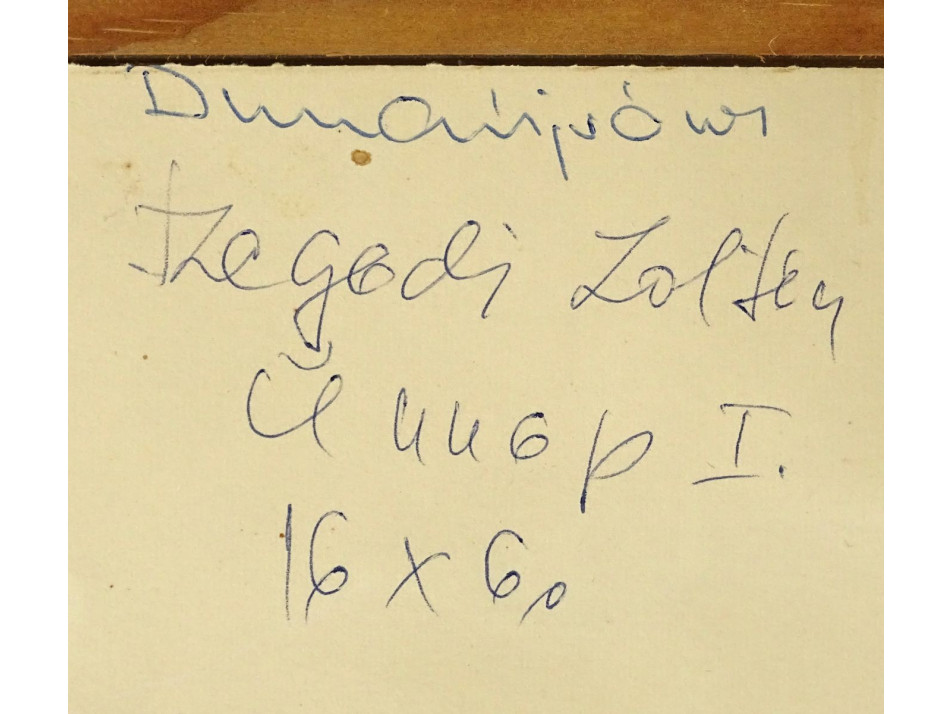 Dunaújváros
Szegedi Zoltán
Ünnep I.
16 x 60